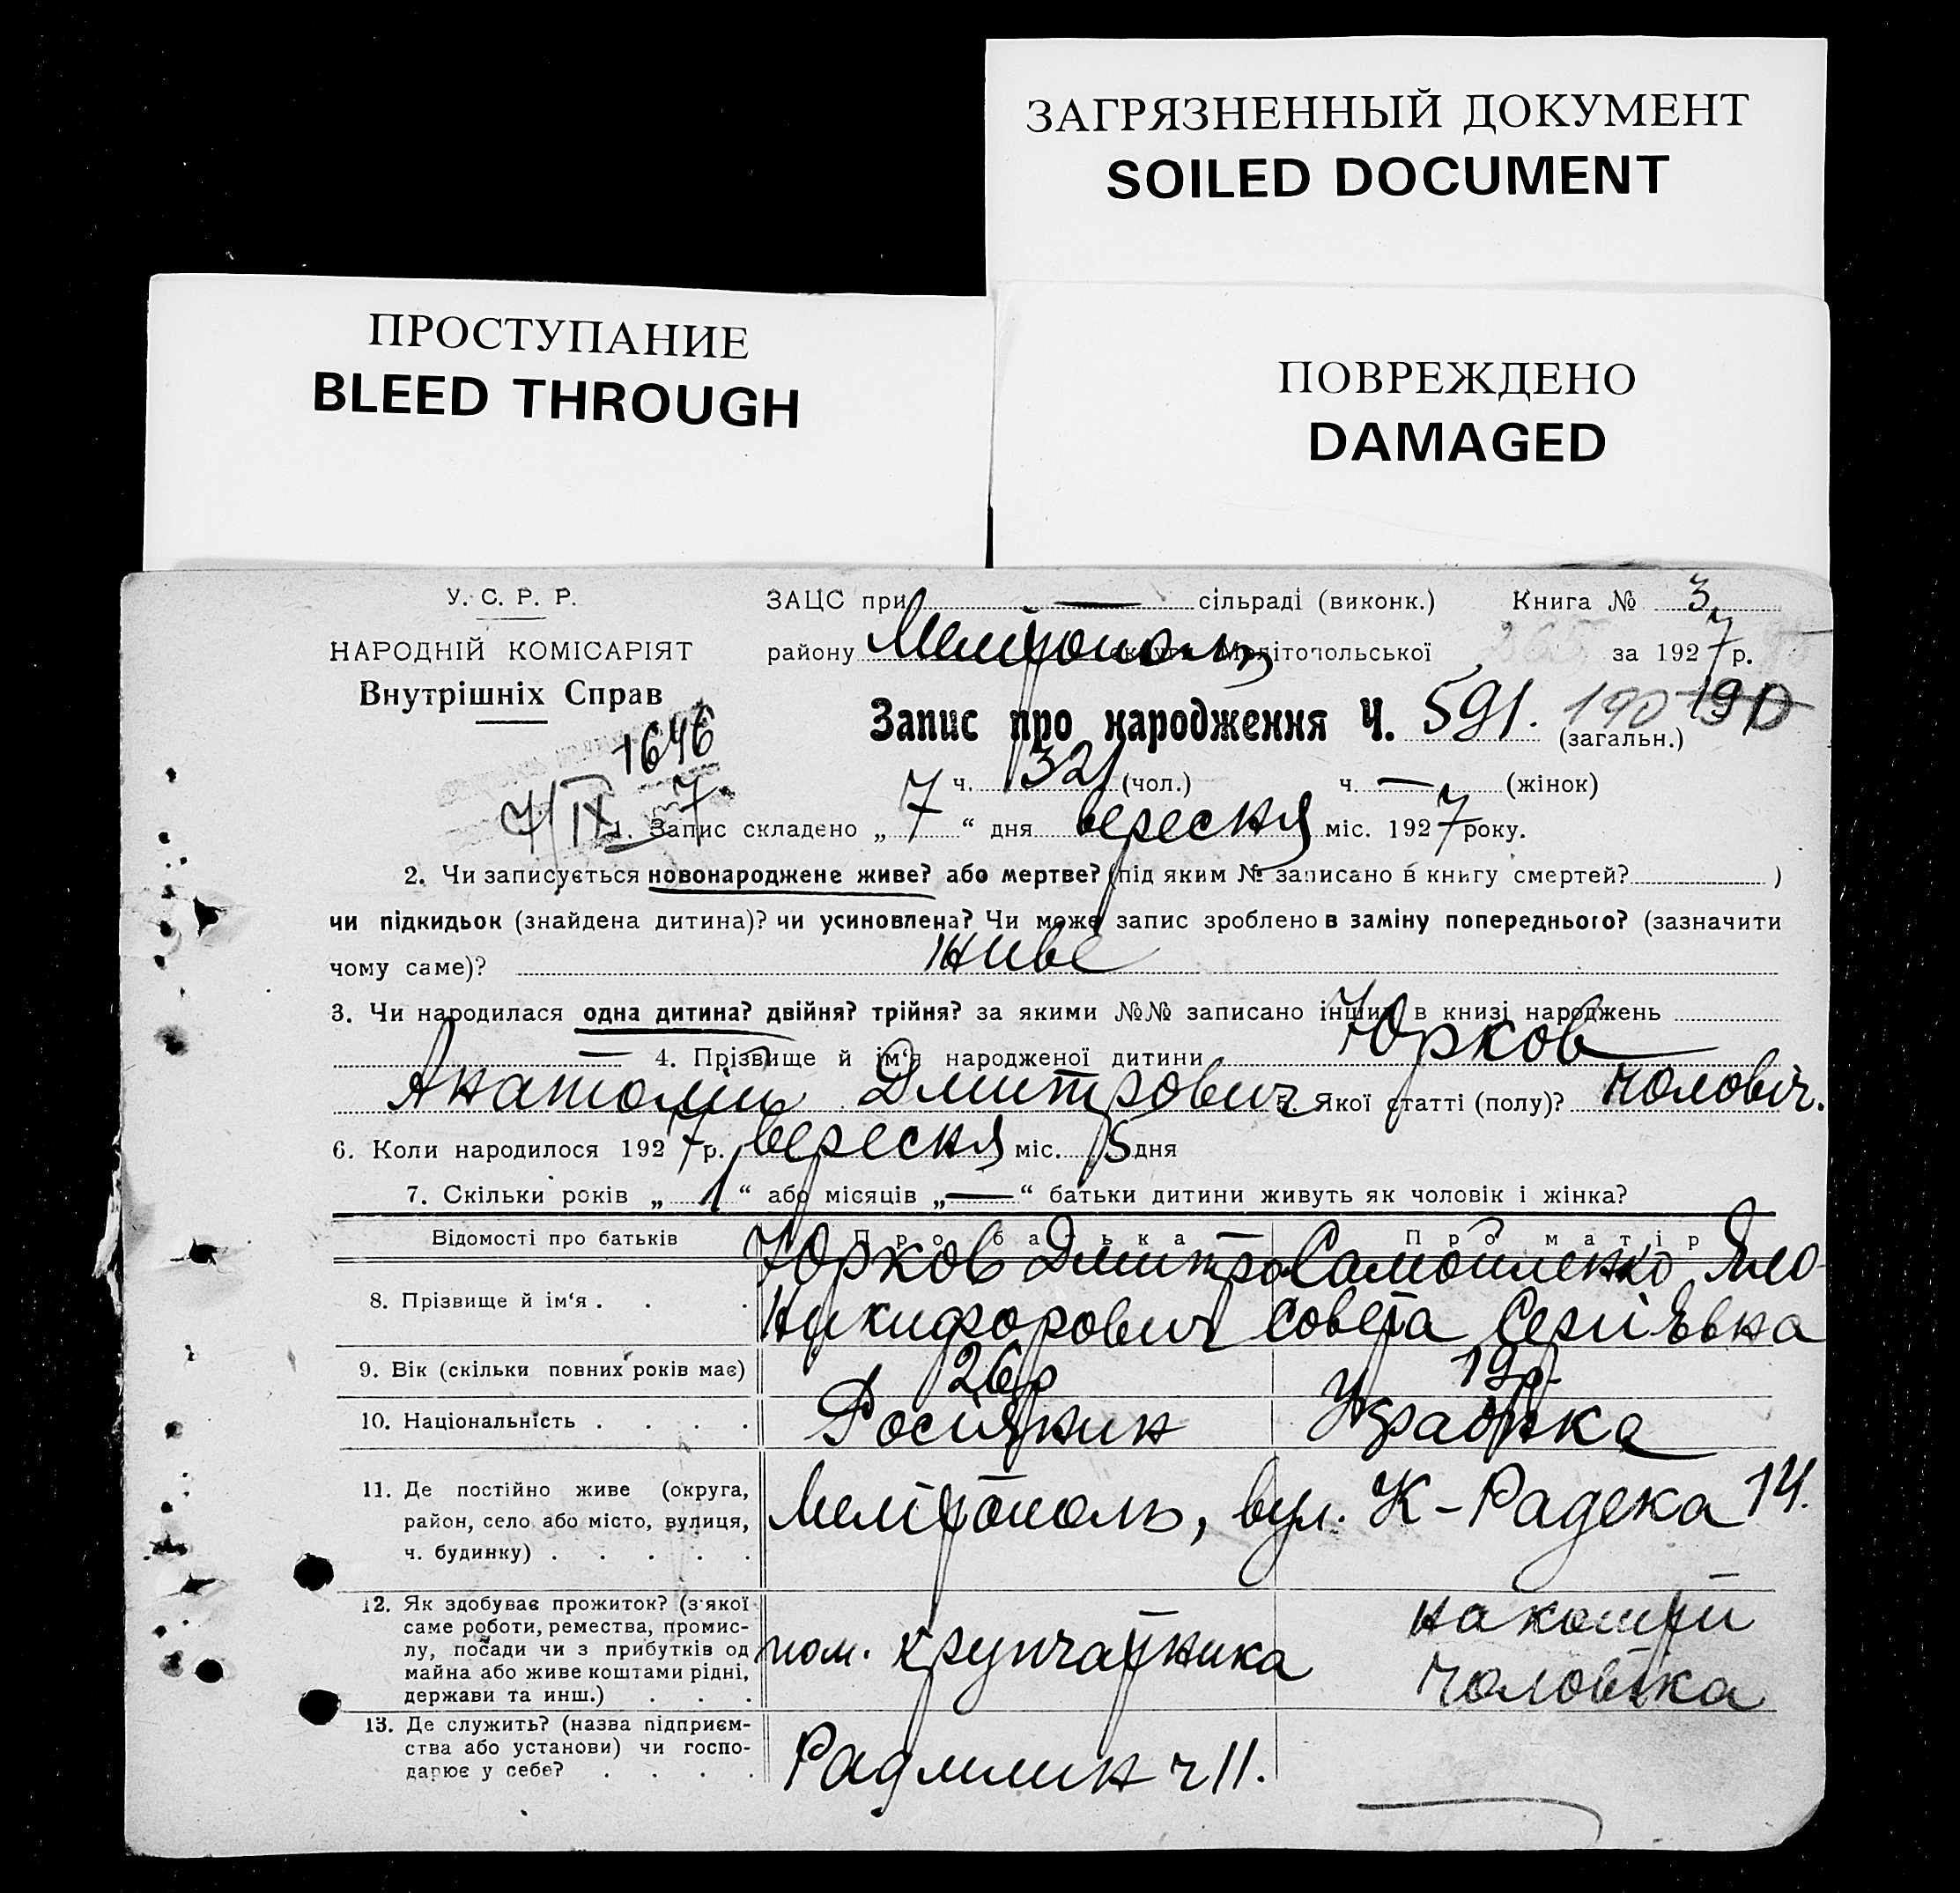 ЗАГРЯЗНЕННЫЙ ДОКУМЕНТ
SOILED DOCUMENT
ПРОСТУПАНИЕ
BLEED THROUGH
ПОВРЕЖДЕНО
DAMAGED
У. С. Р. Р.
НАРОДНІЙ КОМІСАРІЯТ
Внутрішніх Справ
1646
7/IX 7.
ЗАЦС при — сільраді (виконк.) Книга № 3
району Мелітополь округи Мелітопольської за 1927 р.
Запис про народження Ч. 591. 190 190
(загальн.)
ч. 321 (чол.) ч. — (жінок)
1. Запис складено „ 7 “ дня вересня міс. 1927 року.
2. Чи записується новонароджене живе? або мертве? (під яким № записано в книгу смертей? )
чи підкидьок (знайдена дитина)? чи усиновлена? Чи може запис зроблено в заміну попереднього? (зазначити
чому саме)? живе
3. Чи народилася одна дитина? двійня? трійня? за якими №№ записано інших в книзі народжень
— 4. Прізвище й ім‘я народженої дитини Юрков
Анатолій Дмитрович 5. Якої статті (полу)? чоловіч.
6. Коли народилося 1927 р. вересня міс. 5 дня
7. Скільки років „ 1 “ або місяців „ — “ батьки дитини живуть як чоловік і жінка?
Відомості про батьків Про батька Про матір
8. Прізвище й ім‘я . . . Юрков Дмитро Самойленко Єли-
Никифорович совета Сергіївна
9. Вік (скільки повних років має) 26р 19р.
10. Національність . . . . Росіянин Українка
11. Де постійно живе (округа,
район, село або місто, вулиця,
ч. будинку) . . . . .
Мелітополь, вул. К-Радека 14.
12. Як здобуває прожиток? (з якої
саме роботи, ремества, промис-
лу, посади чи з прибутків од
майна або живе коштами рідні,
держави та инш.) . . .
пом. крупчатника
на кошти
чоловіка
13. Де служить? (назва підприєм-
ства або установи) чи госпо-
дарює у себе? . . . .
Радмлин ч 11.